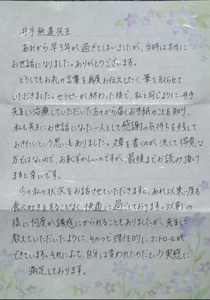 井手無道先生
あれから早3年が過ぎてしまいましたが、当時は本当に
お世話になりました。ありがとうございます。
どうしてもお礼の言葉を再度お伝えしたく筆を取らせて
いただきました。セラピーが終わった後で、私と同じように井手
先生に治療していただいた方々から届くお手紙のことを知り、
私も先生にお世話になった一人として感謝の気持ちを残して
おきたいという思いもありました。文章を書くのが決して得意な
方ではないので、お恥ずかしいのですが、最後までお読み頂け
ますと幸いです。
今の私の状況をお話させていただきますと、あれ以来一度も
食べ吐きをすることなく、快適に過ごしております。以前の
様に何度か誘惑にかられることもありましたが、先生に
教えていただいたように、そのつど理性的にコントロールが
できています。それによって、自分は変われたのだという実感に
満足しております。